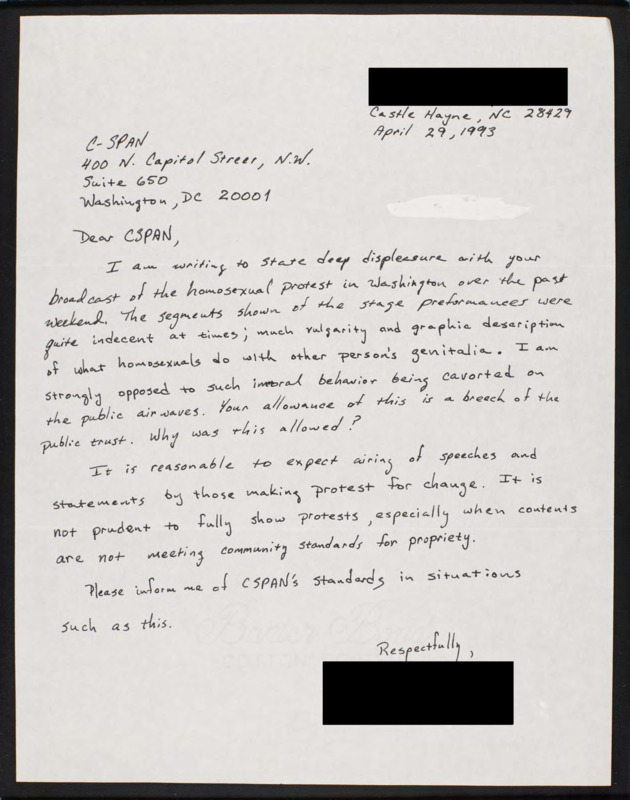 Castle Hayne, NC 28429
April 29, 1993
C-SPAN
400 N. Capitol Streer, N.W.
Suite 650
Washington, DC 20001
Dear CSPAN,
I am writing to state deep displeasure with your
broadcast of the homosexual protest in Washington over the past
weekend. The segments shown of the stage preformances were
quite indecent at times; much vulgarity and graphic description
of what homosexuals do with other person's genitalia. I am
strongly opposed to such immoral behavior being cavorted on
the public airwaves. Your allowance of this is a breach of the
public trust. Why was this allowed?
It is reasonable to expect airing of speeches and
statements by those making protest for change. It is
not prudent to fully show protests, especially when contents
are not meeting community standards for propriety.
Please inform me of CSPAN's standards in situations
such as this.
Respectfully,